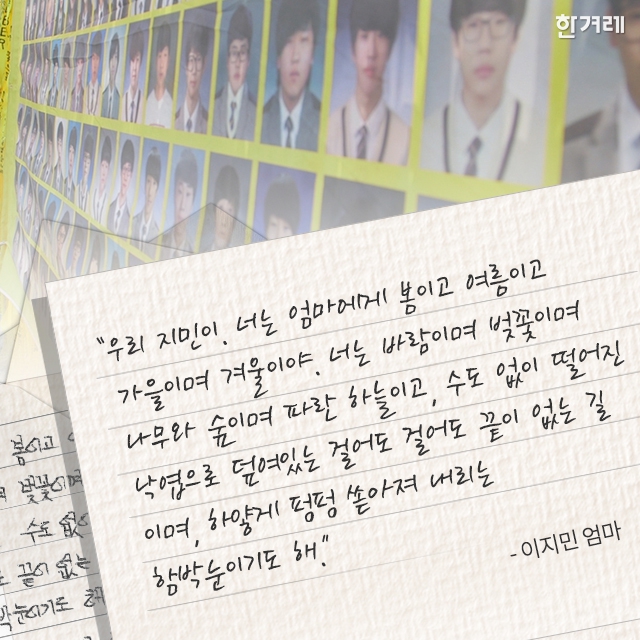 한겨레
"우리 지민이. 너는 엄마에게 봄이고 여름이고
가을이며 겨울이야. 너는 바람이며 벚꽃이며
나무와 숲이며 파란 하늘이고, 수도 없이 떨어진
낙엽으로 덮여있는 걸어도 걸어도 끝이 없는 길
이며, 하얗게 펑펑 쏟아져 내리는
함박눈이기도 해."
- 이지민 엄마
봄이고
벚꽃이며
수도 없
끝이 없는
박눈이기도 해